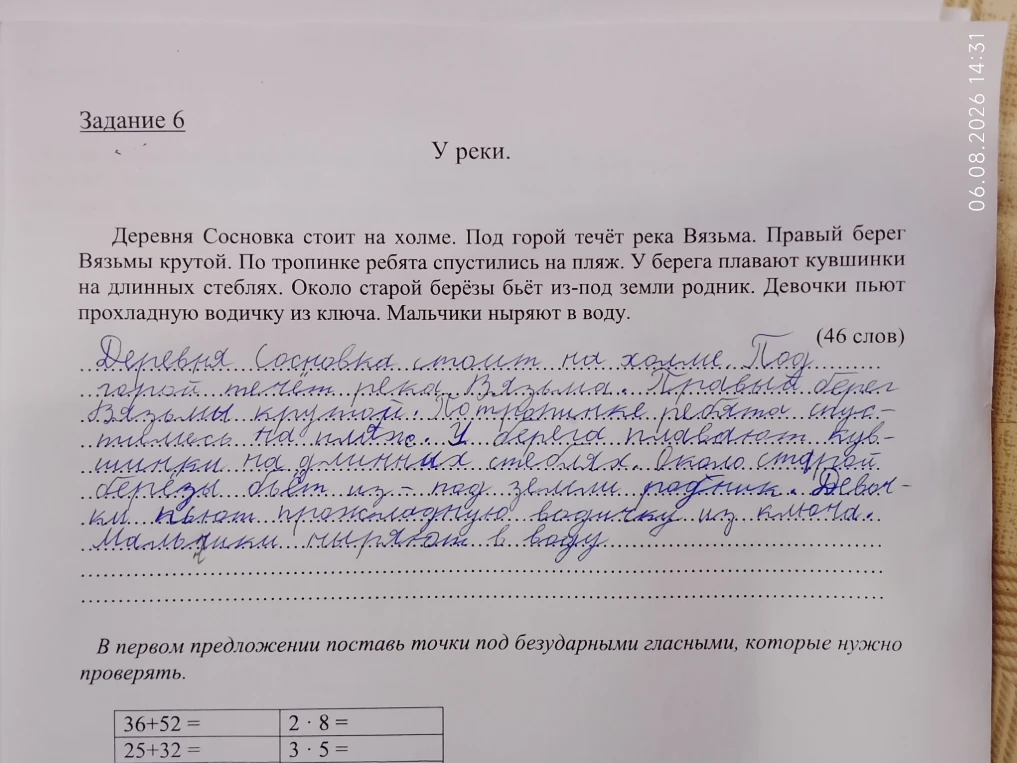 06.08.2026 14:31
Задание 6
У реки.
Деревня Сосновка стоит на холме. Под горой течёт река Вязьма. Правый берег
Вязьмы крутой. По тропинке ребята спустились на пляж. У берега плавают кувшинки
на длинных стеблях. Около старой берёзы бьёт из-под земли родник. Девочки пьют
прохладную водичку из ключа. Мальчики ныряют в воду.
(46 слов)
Деревня Сосновка стоит на холме. Под
горой течёт река Вязьма. Правый берег
Вязьмы крутой. По тропинке ребята спус-
тились на пляж. У берега плавают кув-
шинки на длинных стеблях. Около старой
берёзы бьёт из-под земли родник. Девоч-
ки пьют прохладную водичку из ключа.
Мальчики ныряют в воду
В первом предложении поставь точки под безударными гласными, которые нужно
проверять.
36+52 = 2 · 8 =
25+32 = 3 · 5 =